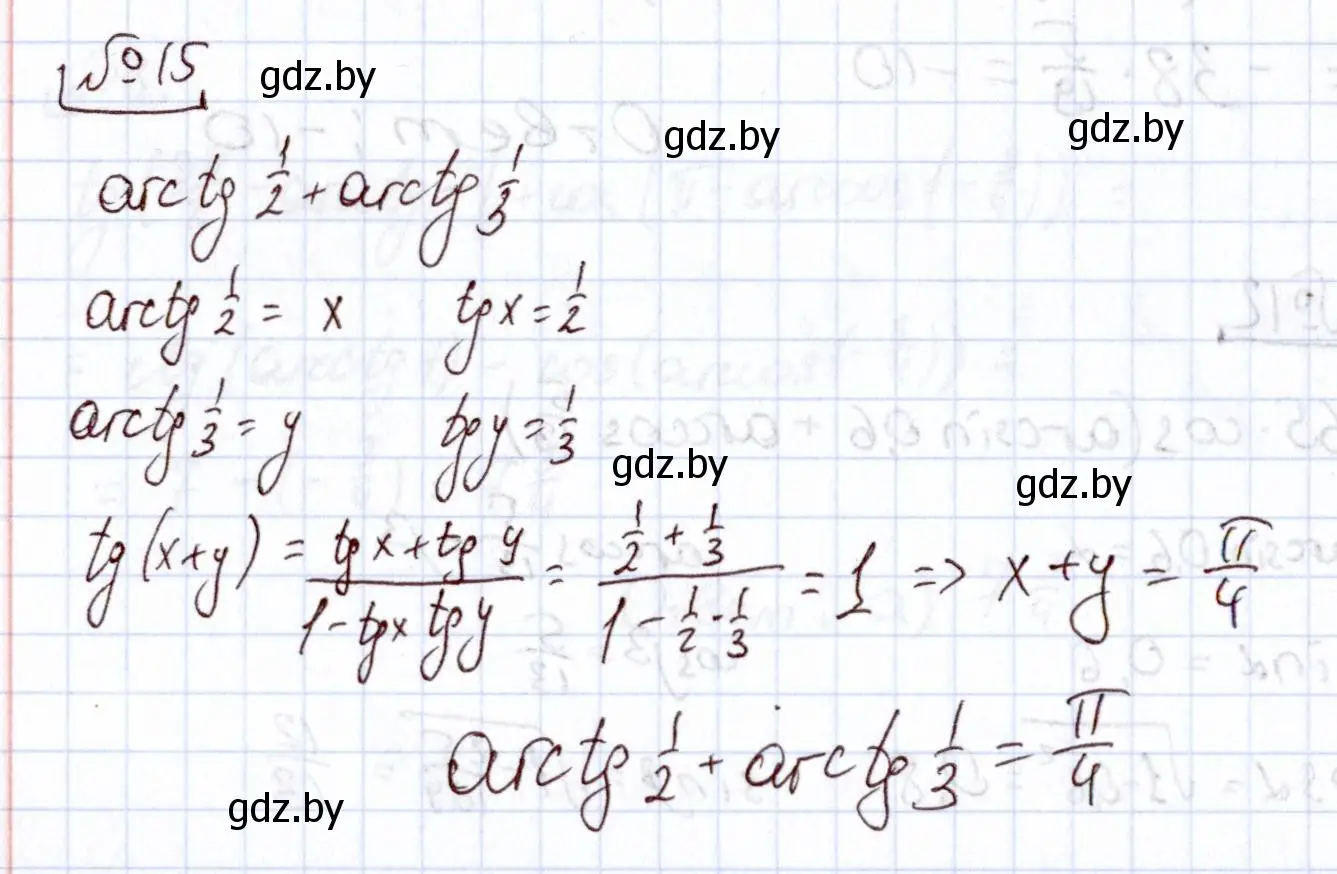 №15
gdz.by
gdz.by
gdz.by
arctg 1/2 + arctg 1/3
arctg 1/2 = x tg x = 1/2
arctg 1/3 = y tg y = 1/3
gdz.by
gdz.by
tg (x+y) = (tg x + tg y)/(1 - tg x tg y) = (1/2 + 1/3)/(1 - 1/2 · 1/3) = 1 => x + y = π/4
arctg 1/2 + arctg 1/3 = π/4
gdz.by